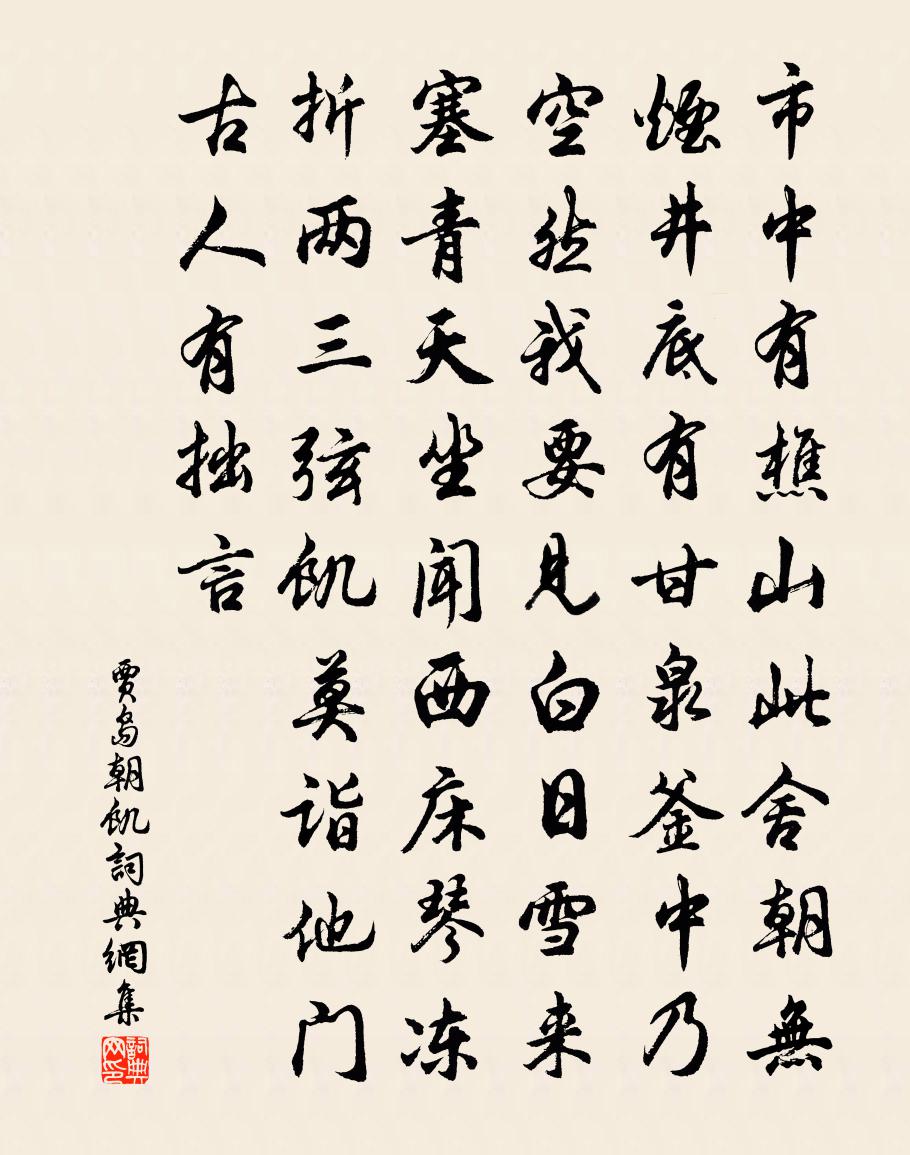 市中有樵山此舍朝無
煙井底有甘泉釜中乃
空然我要見白日雪来
塞青天坐闻西床琴冻
折两三弦飢莫詣他门
古人有拙言
賈島朝飢詞典網集
詞典网印